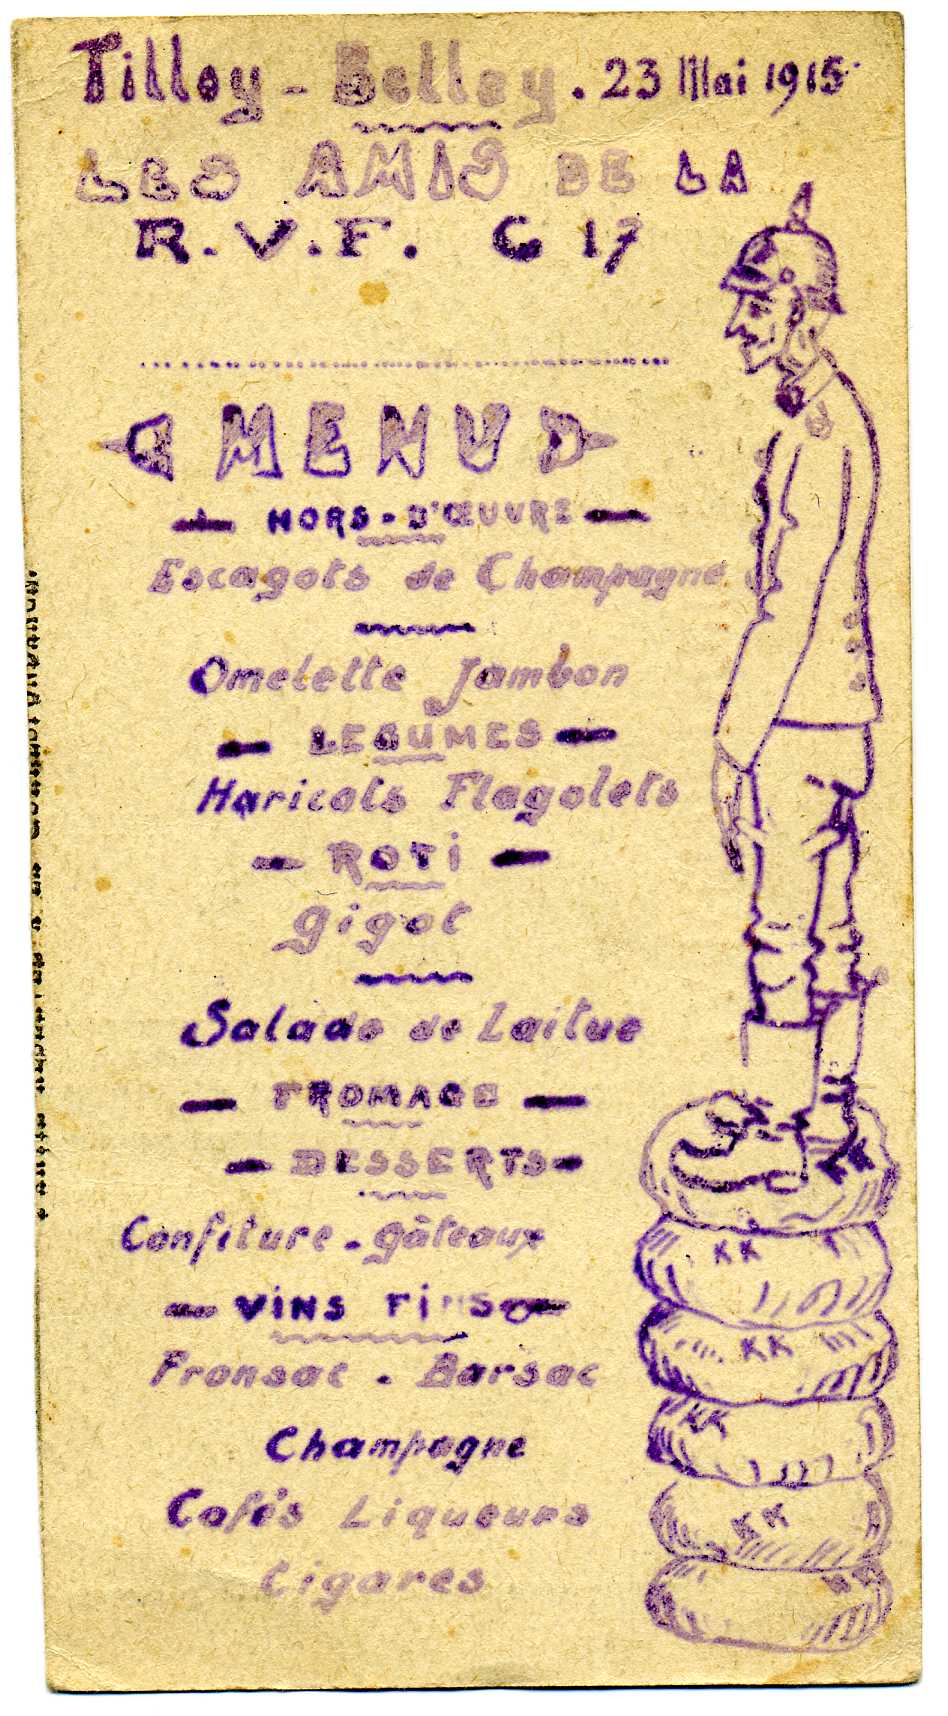 Tilloy - Bellay . 23 Mai 1915
LES AMIS DE LA
R.V.F. C 17
MENU
HORS-D'ŒUVRE
Escagots de Champagne
Omelette Jambon
LEGUMES
Haricots Flagolets
ROTI
Gigot
Salade de Laitue
FROMAGE
DESSERTS
Confiture - Gâteaux
VINS FINS
Fronsac . Barsac
Champagne
Cafés Liqueurs
Cigares
KK
KK
KK
KK
KK